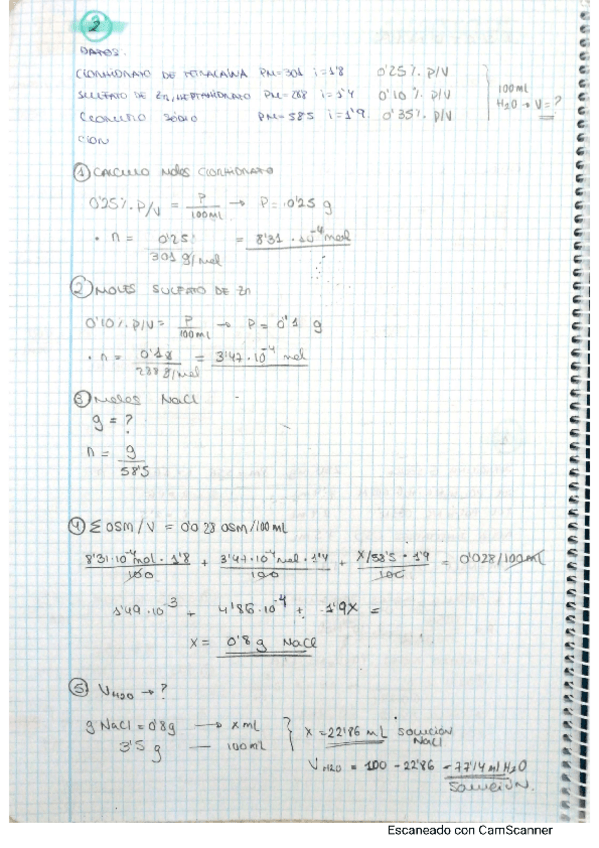 2
DATOS.
CLORHIDRATO DE TETRACAÍNA PM=301 i=1'8 0'25% P/V
SULFATO DE Zn, HEPTAHIDRATO PM=288 i=1'4 0'10% P/V
CLORURO SÓDIO PM=58'5 i=1'9. 0'35% P/V
100ml
H2O → V=?
① CALCULO MOLES CLORHIDRATO
0'25% P/V = P/100ml → P= 0'25 g
• n = 0'25/301 g/mol = 8'31 · 10^-4 mol
② MOLES SULFATO DE Zn
0'10% P/V = P/100ml → P = 0'1 g
• n = 0'1g/288 g/mol = 3'47 · 10^-4 mol
③ Moles NaCl
g = ?
n = g/58'5
④ Σ OSM/V = 0'028 OSM/100ml
8'31·10^-4 mol · 1'8/100 + 3'47·10^-4 mol · 1'4/100 + X/58'5 · 1'9/100 = 0'028/100ml
1'49 · 10^-3 + 4'86 · 10^-4 + 1'9X =
X = 0'8 g NaCl
⑤ V H2O → ?
g NaCl = 0'8g → X ml
3'5 g — 100ml
X = 22'86 mL solución NaCl
V H2O = 100 - 22'86 = 77'14 ml H2O
Solución.
Escaneado con CamScanner